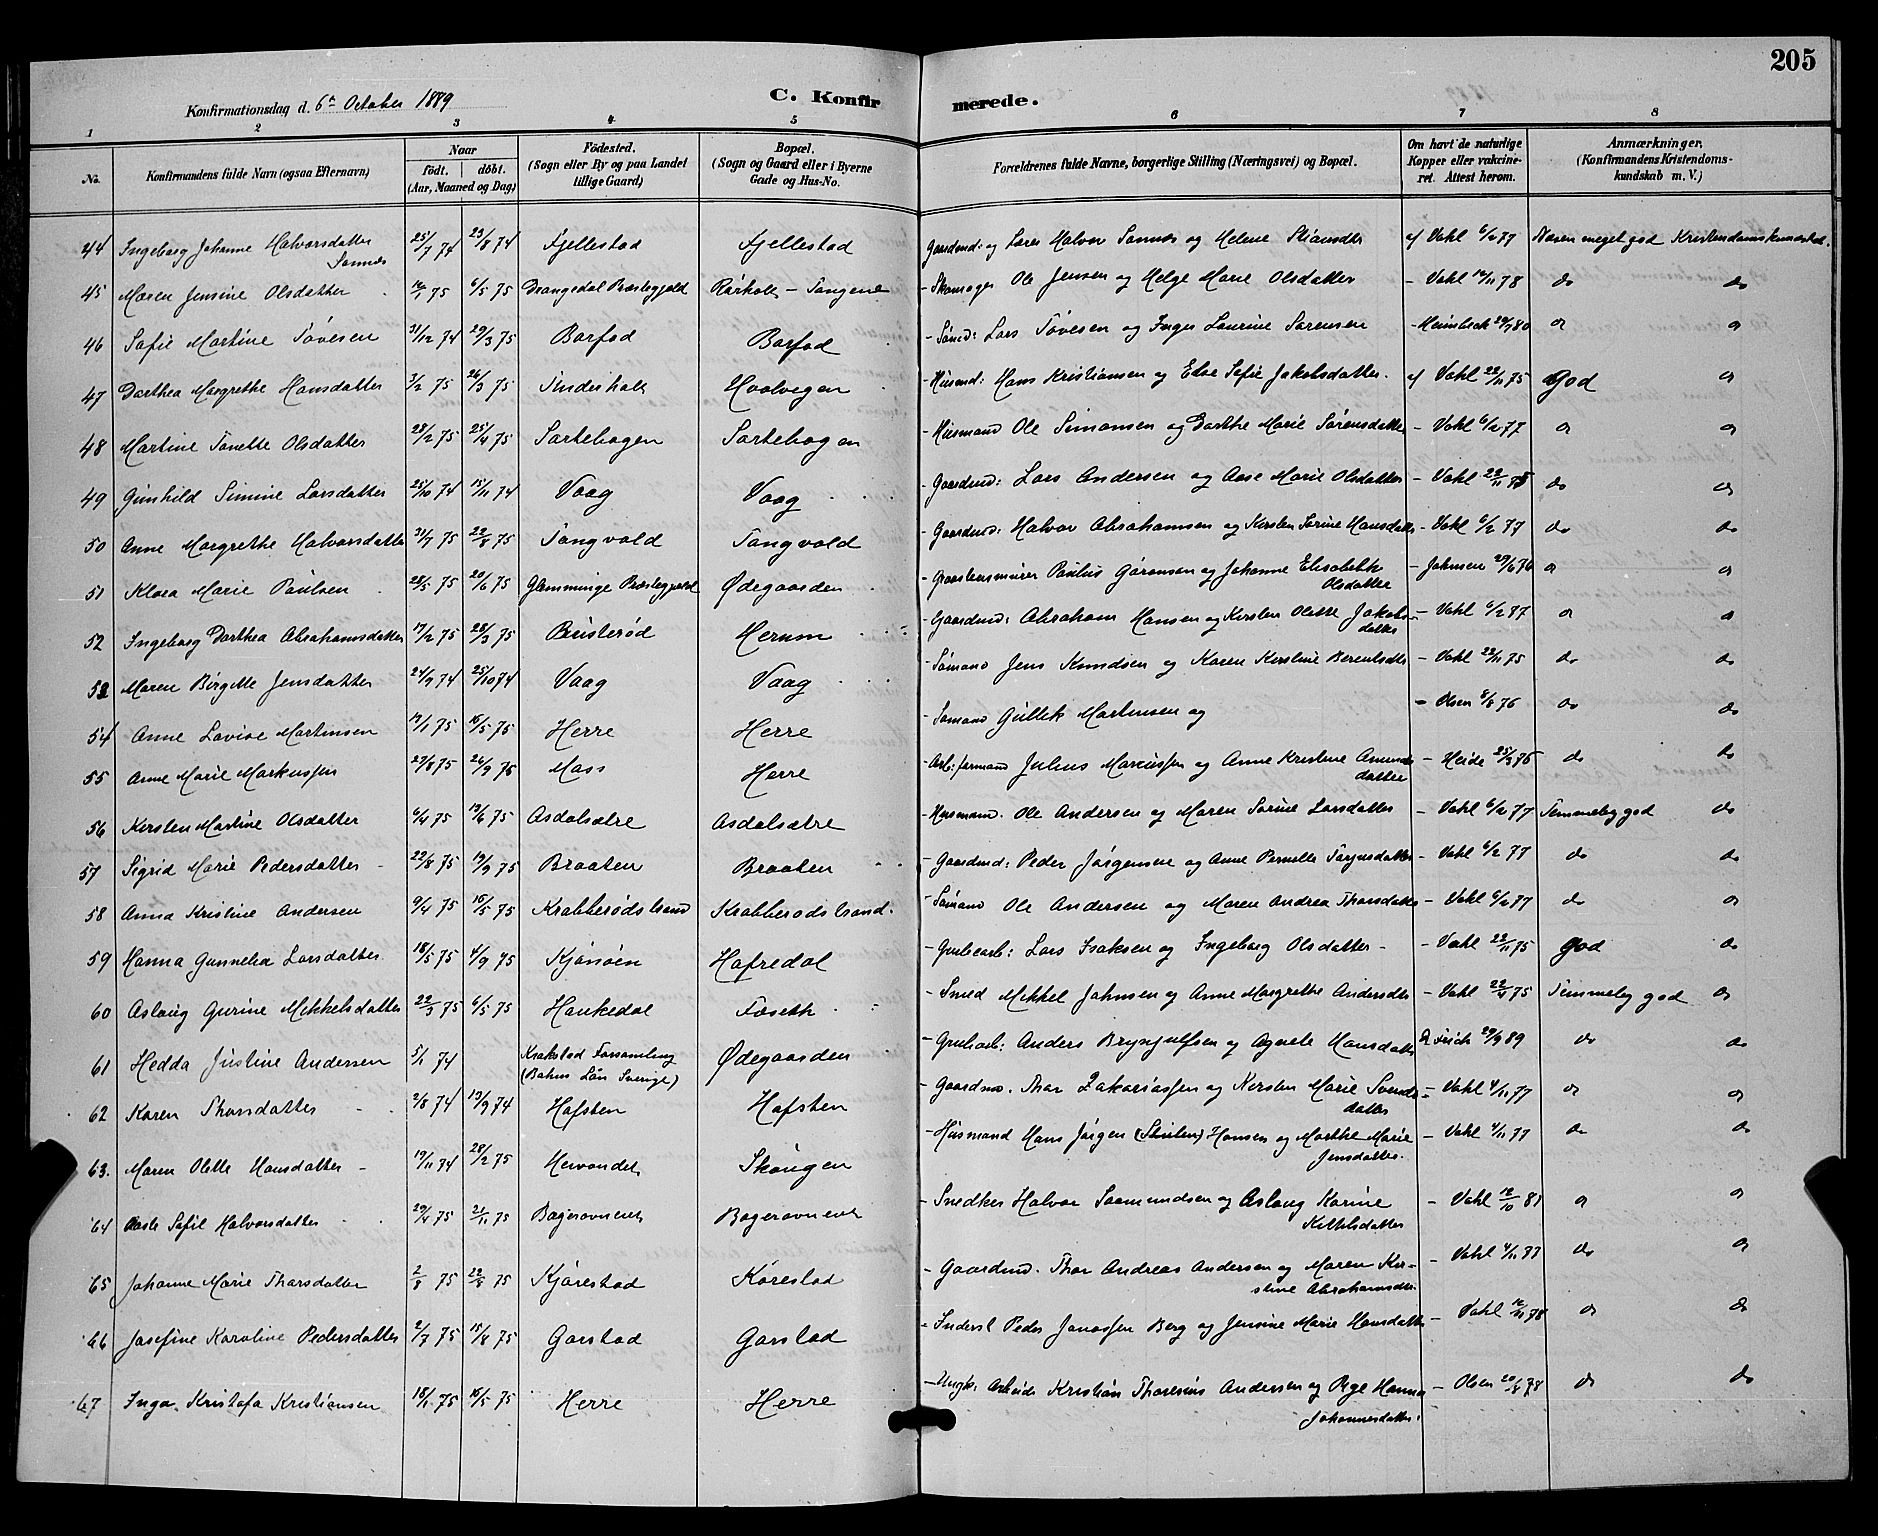 205
Konfirmationsdag d. 6te October 1889 C. Konfirmerede.
1 2 3 4 5 6 7 8
No. Konfirmandens fulde Navn (ogsaa Efternavn) Naar födt. döbt. (Aar, Maaned og Dag) Födested. (Sogn eller By og paa Landet tillige Gaard) Bopæl. (Sogn og Gaard eller i Byerne Gade og Hus-No. Forældrenes fulde Navne, borgerlige Stilling (Næringsvei) og Bopæl. Om havt de naturlige Kopper eller vakcineret. Attest herom. Anmærkninger. (Konfirmandens Kristendomskundskab m. V.)
44 Ingeborg Johanne Halvorsdatter Sannes 25/7 74 23/8 74 Fjellestad Fjellestad Halvor Sannes og Helene af Vahl 6/2 77 Næsten meget god Kristendomskundskab.
45 Maren Jensine Olsdatter 75 6/5 75 Drangedal Præstegjeld Rörholt - Tangene - Skomager Ole Jensen og Helge Marie Olsdatter - Vahl 78 do do
46 Sofie Martine Tövesen 31/12 74 29/3 75 Barfod Barfod - Sömd: Lars Tövesen og Inger Laurine Sörensen - Heimbeck 80 do do
47 Dorthea Margrethe Hansdatter 3/2 75 26/3 75 Tinderholt Hvalvegen - Husmd: Hans Kristiansen og Else Sofie Jakobsdatter. af Vahl 22/11 75 God do
48 Martine Tonette Olsdatter 28/2 75 25/4 75 Sortebogen Sortebogen - Husmand Ole Simonsen og Dorthe Marie Sörensdatter - Vahl 6/2 77 do do
49 Gunhild Simine Larsdatter 25/10 74 15/11 74 Vaag Vaag - Gaardmd: Lars Andersen og Aase Marie Olsdatter - Vahl 22/11 do do
50 Anne Margrethe Halvorsdatter 31/7 75 22/8 75 Tangvald Tangvald - Gaardmd: Halvor Abrahamsen og Kirsten Sörine Hansdatter - Vahl 6/2 77 do do
51 Klara Marie Paulsen 28/5 75 20/6 75 Glemminge Præstegjeld Ødegaarden - Graastensmurer Paulus Göransen og Johanne Elisabeth Olsdatter - Johnsen 29/6 76 do do
52 Ingeborg Dorthea Abrahamsdatter 17/2 75 28/3 75 Herum - Gaardmd: Abraham Hansen og Kirsten Olette Jakobsdatter - Vahl 6/2 77 do do
53 Maren Birgitte Jensdatter 24/9 74 25/10 74 Vaag Vaag - Sömand Jens Knudsen og Karen Kirstine Berentsdtr - Vahl 22/11 75 do do
54 Anne Lovise Martinsen 75 16/5 75 Herre Herre - Sömand Gullik Martinsen og - Olsen 8/8 76 do do
55 Anne Marie Markussen 75 26/9 75 Herre Julius Marcussen og Anne Kristine Amundsdatter - Heide 25/3 76 do do
56 Kirsten Martine Olsdatter 6/4 75 13/6 75 Asdalsætre Asdalsætre - Husmand. Ole Andersen og Maren Sörine Larsdatter - Vahl 6/2 77 Temmelig god do
57 Sigrid Marie Pedersdatter 22/8 75 19/9 75 Braaten Braaten - Gaardmd: Peder Jörgensen og Anne Pernille - Vahl 6/2 77 do do
58 Anna Kristine Andersen 9/4 75 16/5 75 Krabberödstrand Krabberödstrand. - Sömand Ole Andersen og Maren Andrea Thorsdatter - Vahl 6/2 77 do do
59 Hanna Gunnelia Larsdatter 18/5 75 4/9 75 Kjönöen Hafredal - Grubearb: Lars Isaksen og Ingeborg Olsdatter - - Vahl 22/11 75 god do
60 Aslaug Gurine Mikkelsdatter 22/3 75 6/5 75 Haukedal Foseth - Smed Mikkel Johnsen og Anne Margrethe Andersdtr - Vahl 22/4 75 Temmelig god do
61 Hedda Justine Andersen 5/1 74 Krokstad Forsamling (Bahus Län Sverige) Ødegaarden - Grubearb: Anders Brynjulfsen og Agnete Hansdatter 29/9 89 do do
62 Karen Thorsdatter 2/8 74 13/9 74 Hafsten Hafsten - Gaardmd. Thor Zakariassen og Kirsten Marie Svendsdatter - Vahl 4/11 77 do do
63. Maren Olette Hansdatter 19/11 74 28/2 75 Skougen - Husmand Hans Jörgen Hansen og Marthe Marie Jensdatter. - Vahl 4/11 77 do do
64 Aaste Sofie Halvorsdatter 29/4 75 21/11 75 Bageravnene Bageravnene - Snedker Halvor Saamundsen og Aslaug Karine Kittilsdatter - Vahl 12/10 81 do do
65 Johanne Marie Thorsdatter 2/8 75 22/8 75 Kjörestad Körestad - Gaardmd. Thor Andreas Andersen og Maren Kirstine Abrahamsdtr. - Vahl 4/11 77 do do
66 Josefine Karoline Pedersdatter 2/7 75 15/8 75 Garstad Garstad - Inderst Peder Janassen Berg og Jensine Marie Hansdatter - Vahl 12/11 78 do do
67 Inga Kristofa Kristiansen 18/1 75 16/5 75 Herre Herre Kristian Thoresius Andersen og Hanna Johannesdatter. - Olsen 20/8 78 do do